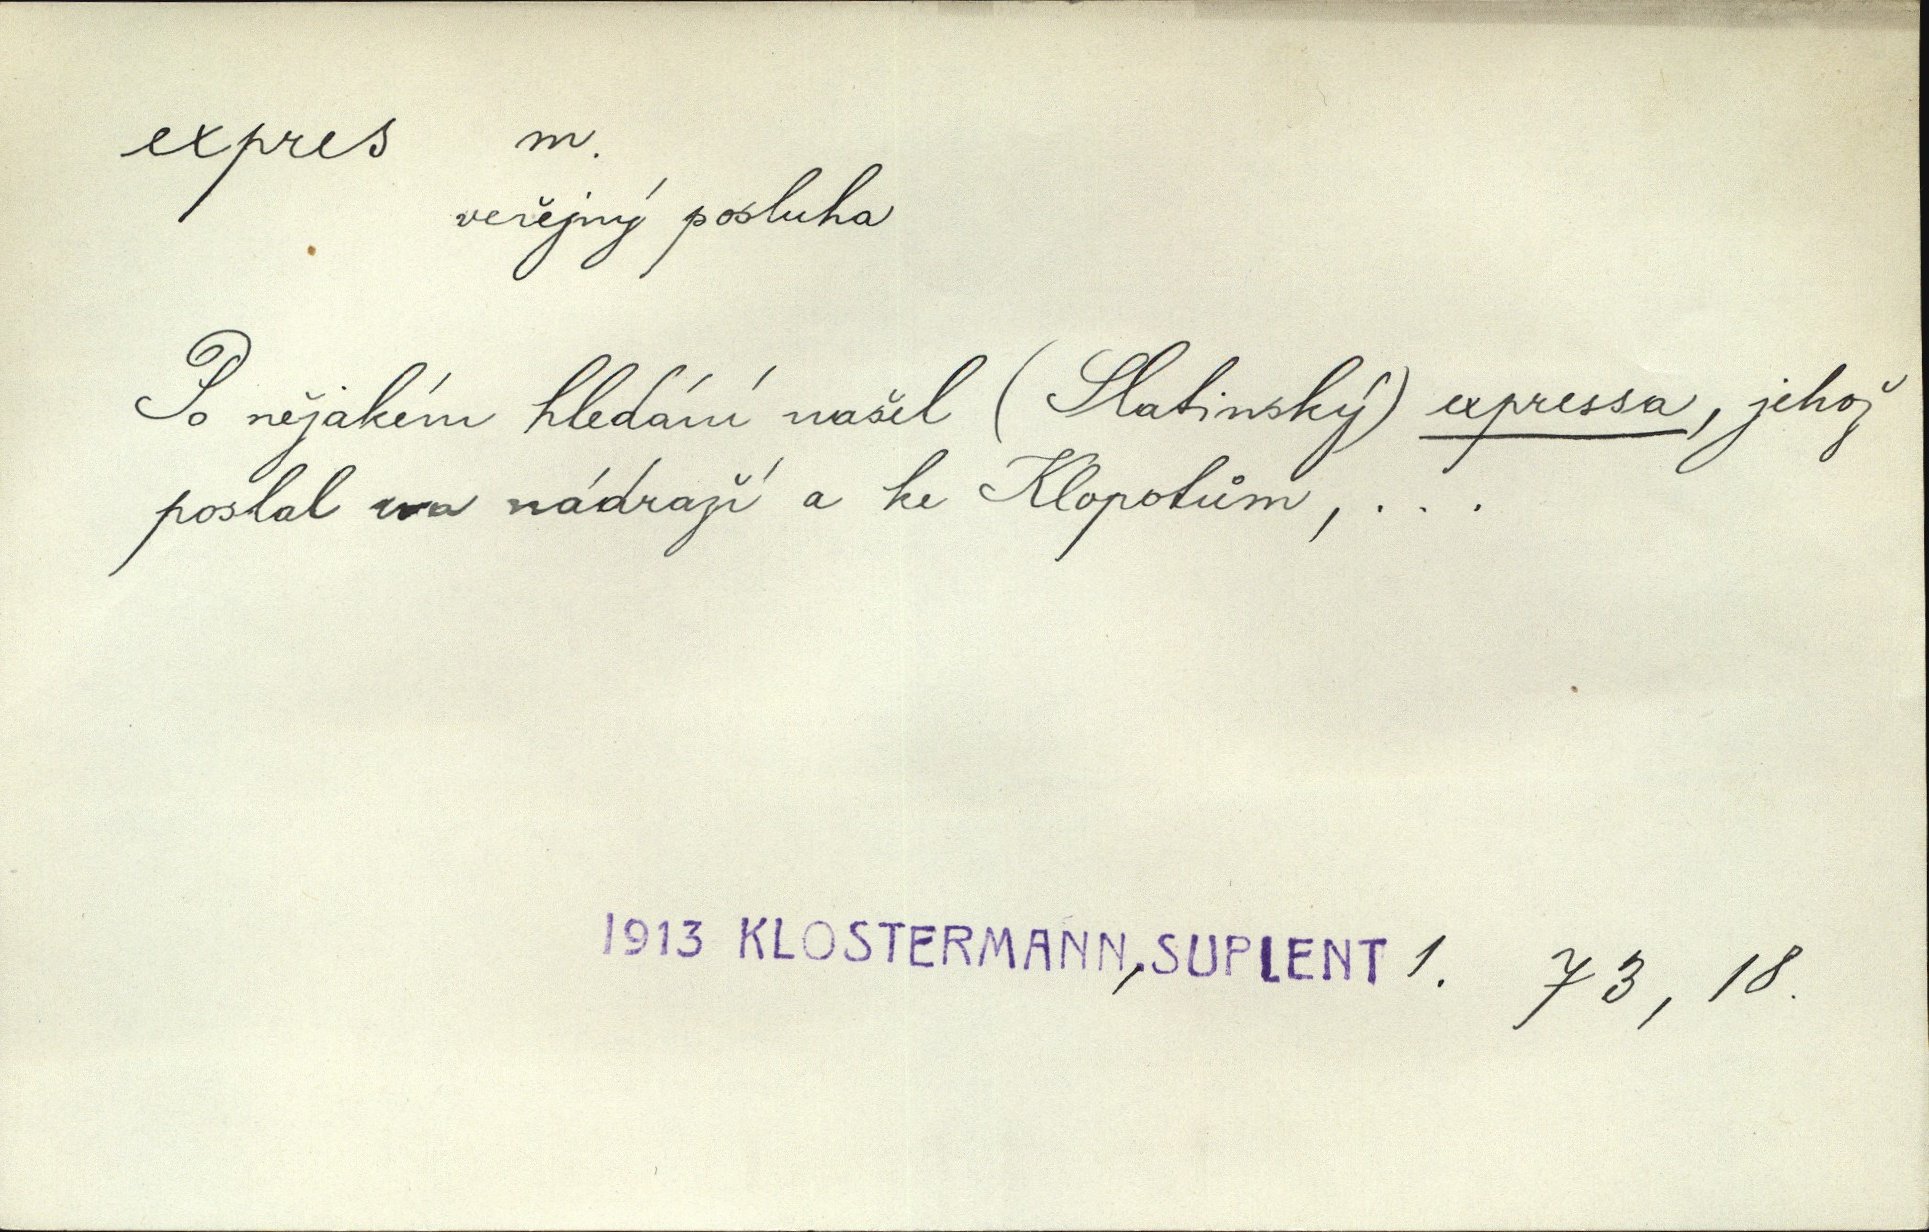 expres m.
veřejný posluha
Po nějakém hledání našel (Slatinský) expressa, jehož
poslal na nádraží a ke Klopotům, . . .
1913 KLOSTERMANN, SUPLENT 1. 73, 18.